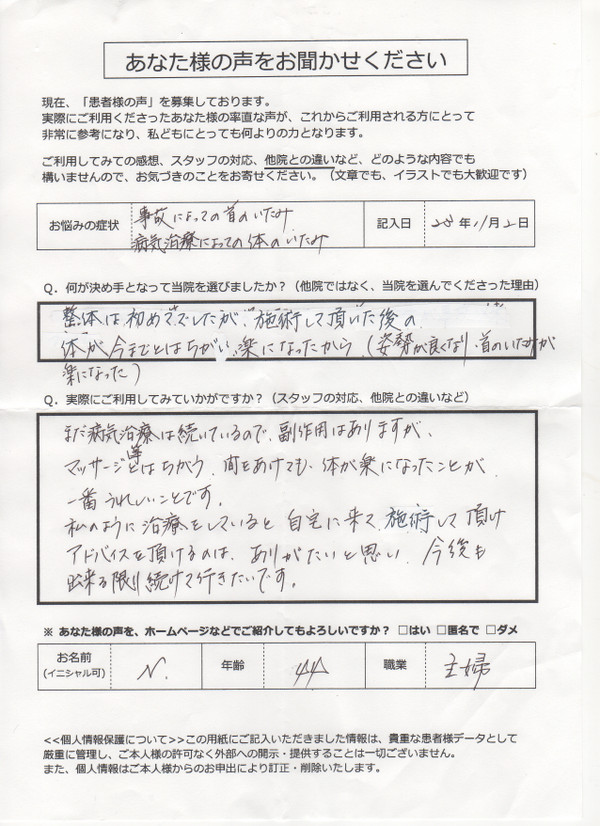 あなた様の声をお聞かせください
現在、「患者様の声」を募集しております。
実際にご利用くださったあなた様の率直な声が、これからご利用される方にとって
非常に参考になり、私どもにとっても何よりの力となります。
ご利用してみての感想、スタッフの対応、他院との違いなど、どのような内容でも
構いませんので、お気づきのことをお寄せください。（文章でも、イラストでも大歓迎です）
お悩みの症状
事故によっての首のいたみ
病気治療によっての体のいたみ
記入日
年11月2日
Q．何が決め手となって当院を選びましたか？（他院ではなく、当院を選んでくださった理由）
整体は初めてでしたが、施術して頂いた後の
体が今までとはちがい、楽になったから（姿勢が良くなり、首のいたみが
楽になった）
Q．実際にご利用してみていかがですか？（スタッフの対応、他院との違いなど）
まだ病気治療は続いているので、副作用はありますが、
マッサージ等とはちがう、間をあけても、体が楽になったことが
一番うれしいことです。
私のように治療をしていると自宅に来て、施術して頂け
アドバイスを頂けるのは、ありがたいと思い、今後も
出来る限り続けて行きたいです。
※ あなた様の声を、ホームページなどでご紹介してもよろしいですか？ □はい □匿名で □ダメ
お名前
（イニシャル可）
N.
年齢
44
職業
主婦
<<個人情報保護について>>この用紙にご記入いただきました情報は、貴重な患者様データとして
厳重に管理し、ご本人様の許可なく外部への開示・提供することは一切ございません。
また、個人情報はご本人様からのお申出により訂正・削除いたします。